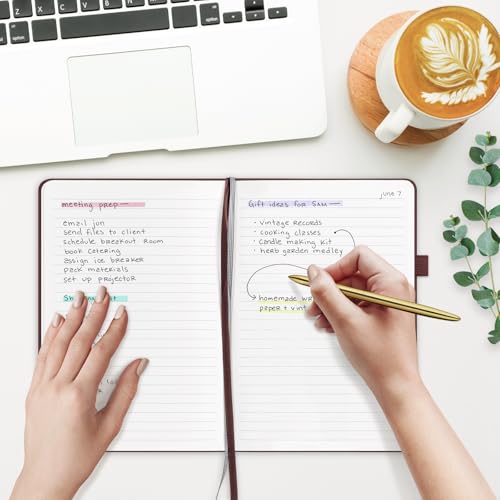 meeting prep
email jon
send files to client
schedule breakout room
book catering
assign ice breaker
pack materials
set up projector
june 7
Gift ideas for Sam
• vintage records
• cooking classes
• candle making kit
• herb garden medley
homemade
paper +